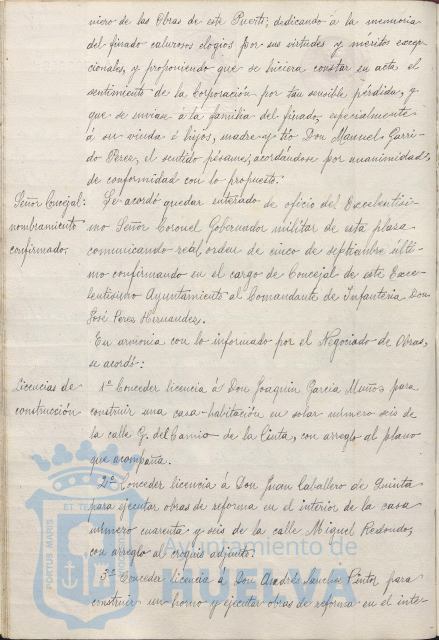 niero de las Obras de este Puerto; dedicando á la memoria
del finado calurosos elogios por sus virtudes y méritos excep-
cionales, y proponiendo que se hiciera constar en acta el
sentimiento de la Corporación por tan sensible pérdida, y
que se enviara á la familia del finado, especialmente
á su viuda é hijos, madre y tio Don Manuel Garri-
do Perez, el sentido pésame; acordándose por unanimidad,
de conformidad con lo propuesto.
Señor Concejal:
nombramiento
confirmado.
Se acordó quedar enterado de oficio del Excelentísi-
mo Señor Coronel Gobernador militar de esta plaza
comunicando real orden de cinco de septiembre últi-
mo confirmando en el cargo de Concejal de este Exce-
lentísimo Ayuntamiento al Comandante de Infantería Don
José Perez Hernandez.
En armonía con lo informado por el Negociado de Obras,
se acordó:
Licencias de
construcción
1º Conceder licencia á Don Joaquin Garcia Muños para
construir una casa-habitación en solar número seis de
la calle G. del Camino de la Cinta, con arreglo al plano
que acompaña.
2º Conceder licencia á Don Juan Caballero de Quinta
para ejecutar obras de reforma en el interior de la casa
número cuarenta y seis de la calle Miguel Redondo,
con arreglo al croquis adjunto.
3º Conceder licencia á Don Andrés Sanchez Pintor para
construir un horno y ejecutar obras de reforma en el inte-
Ayuntamiento de
HUELVA
PORTUS MARIS
ET TE